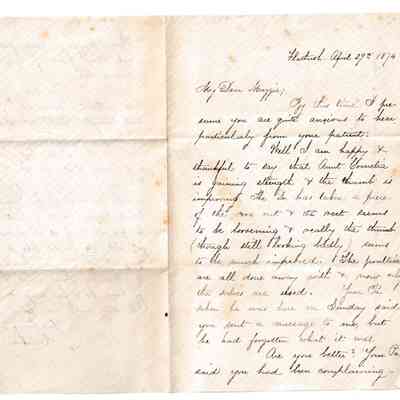 April 29th 1874
My Dear Maggie,
By this time I pre-
sume you are quite anxious to hear
particularly from your patient.
Well I am happy &
thankful to say that Aunt Cornelia
is gaining strength & the thumb is
improving. The Dr. has taken a piece
of the out & the rest seems
to be loosening & really the thumb
(though still looking badly) seems
to be much improved. The poultices
are all done away with & now only
the salves are used. Your Pa
when he was here on Sunday said
you sent a message to me, but
he had forgotten what it was.
Are you better? Your Pa
said you had been complaining -